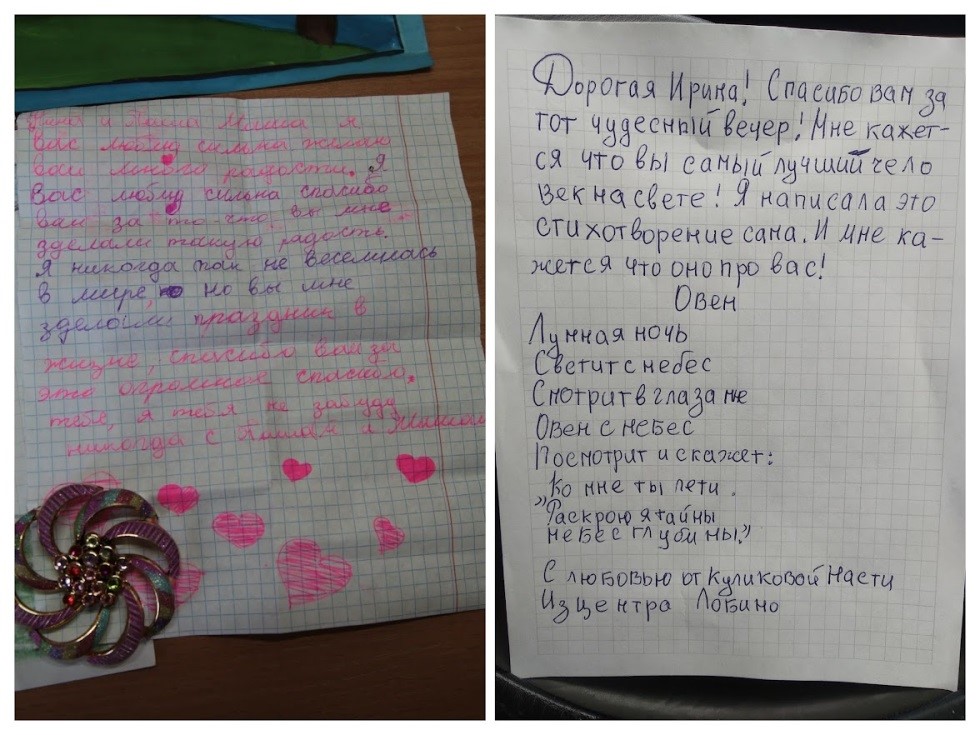 Ирина и Паша Миша я
вас люблю сильна желаю
вам многа радости. Я
Вас люблю сильна спосибо
вам за то что вы мне
зделали такую радость.
Я никогда так не веселилась
в мире, но вы мне
зделали праздник в
жизне, спосибо вам за
это огромное спосибо,
тебе, я тебя не забуду
никогда с Пашам и Мишам
Дорогая Ирина! Спасибо вам за
тот чудесный вечер! Мне кажет-
ся что вы самый лучший чело
век на свете! Я написала это
стихотворение сама. И мне ка-
жется что оно про вас!
Овен
Лунная ночь
Светит с небес
Смотрит в глаза мне
Овен с небес
Посмотрит и скажет:
"Ко мне ты лети.
Раскрою я тайны
небес глубины."
С любовью от Куликовой Насти
Из центра Лобино